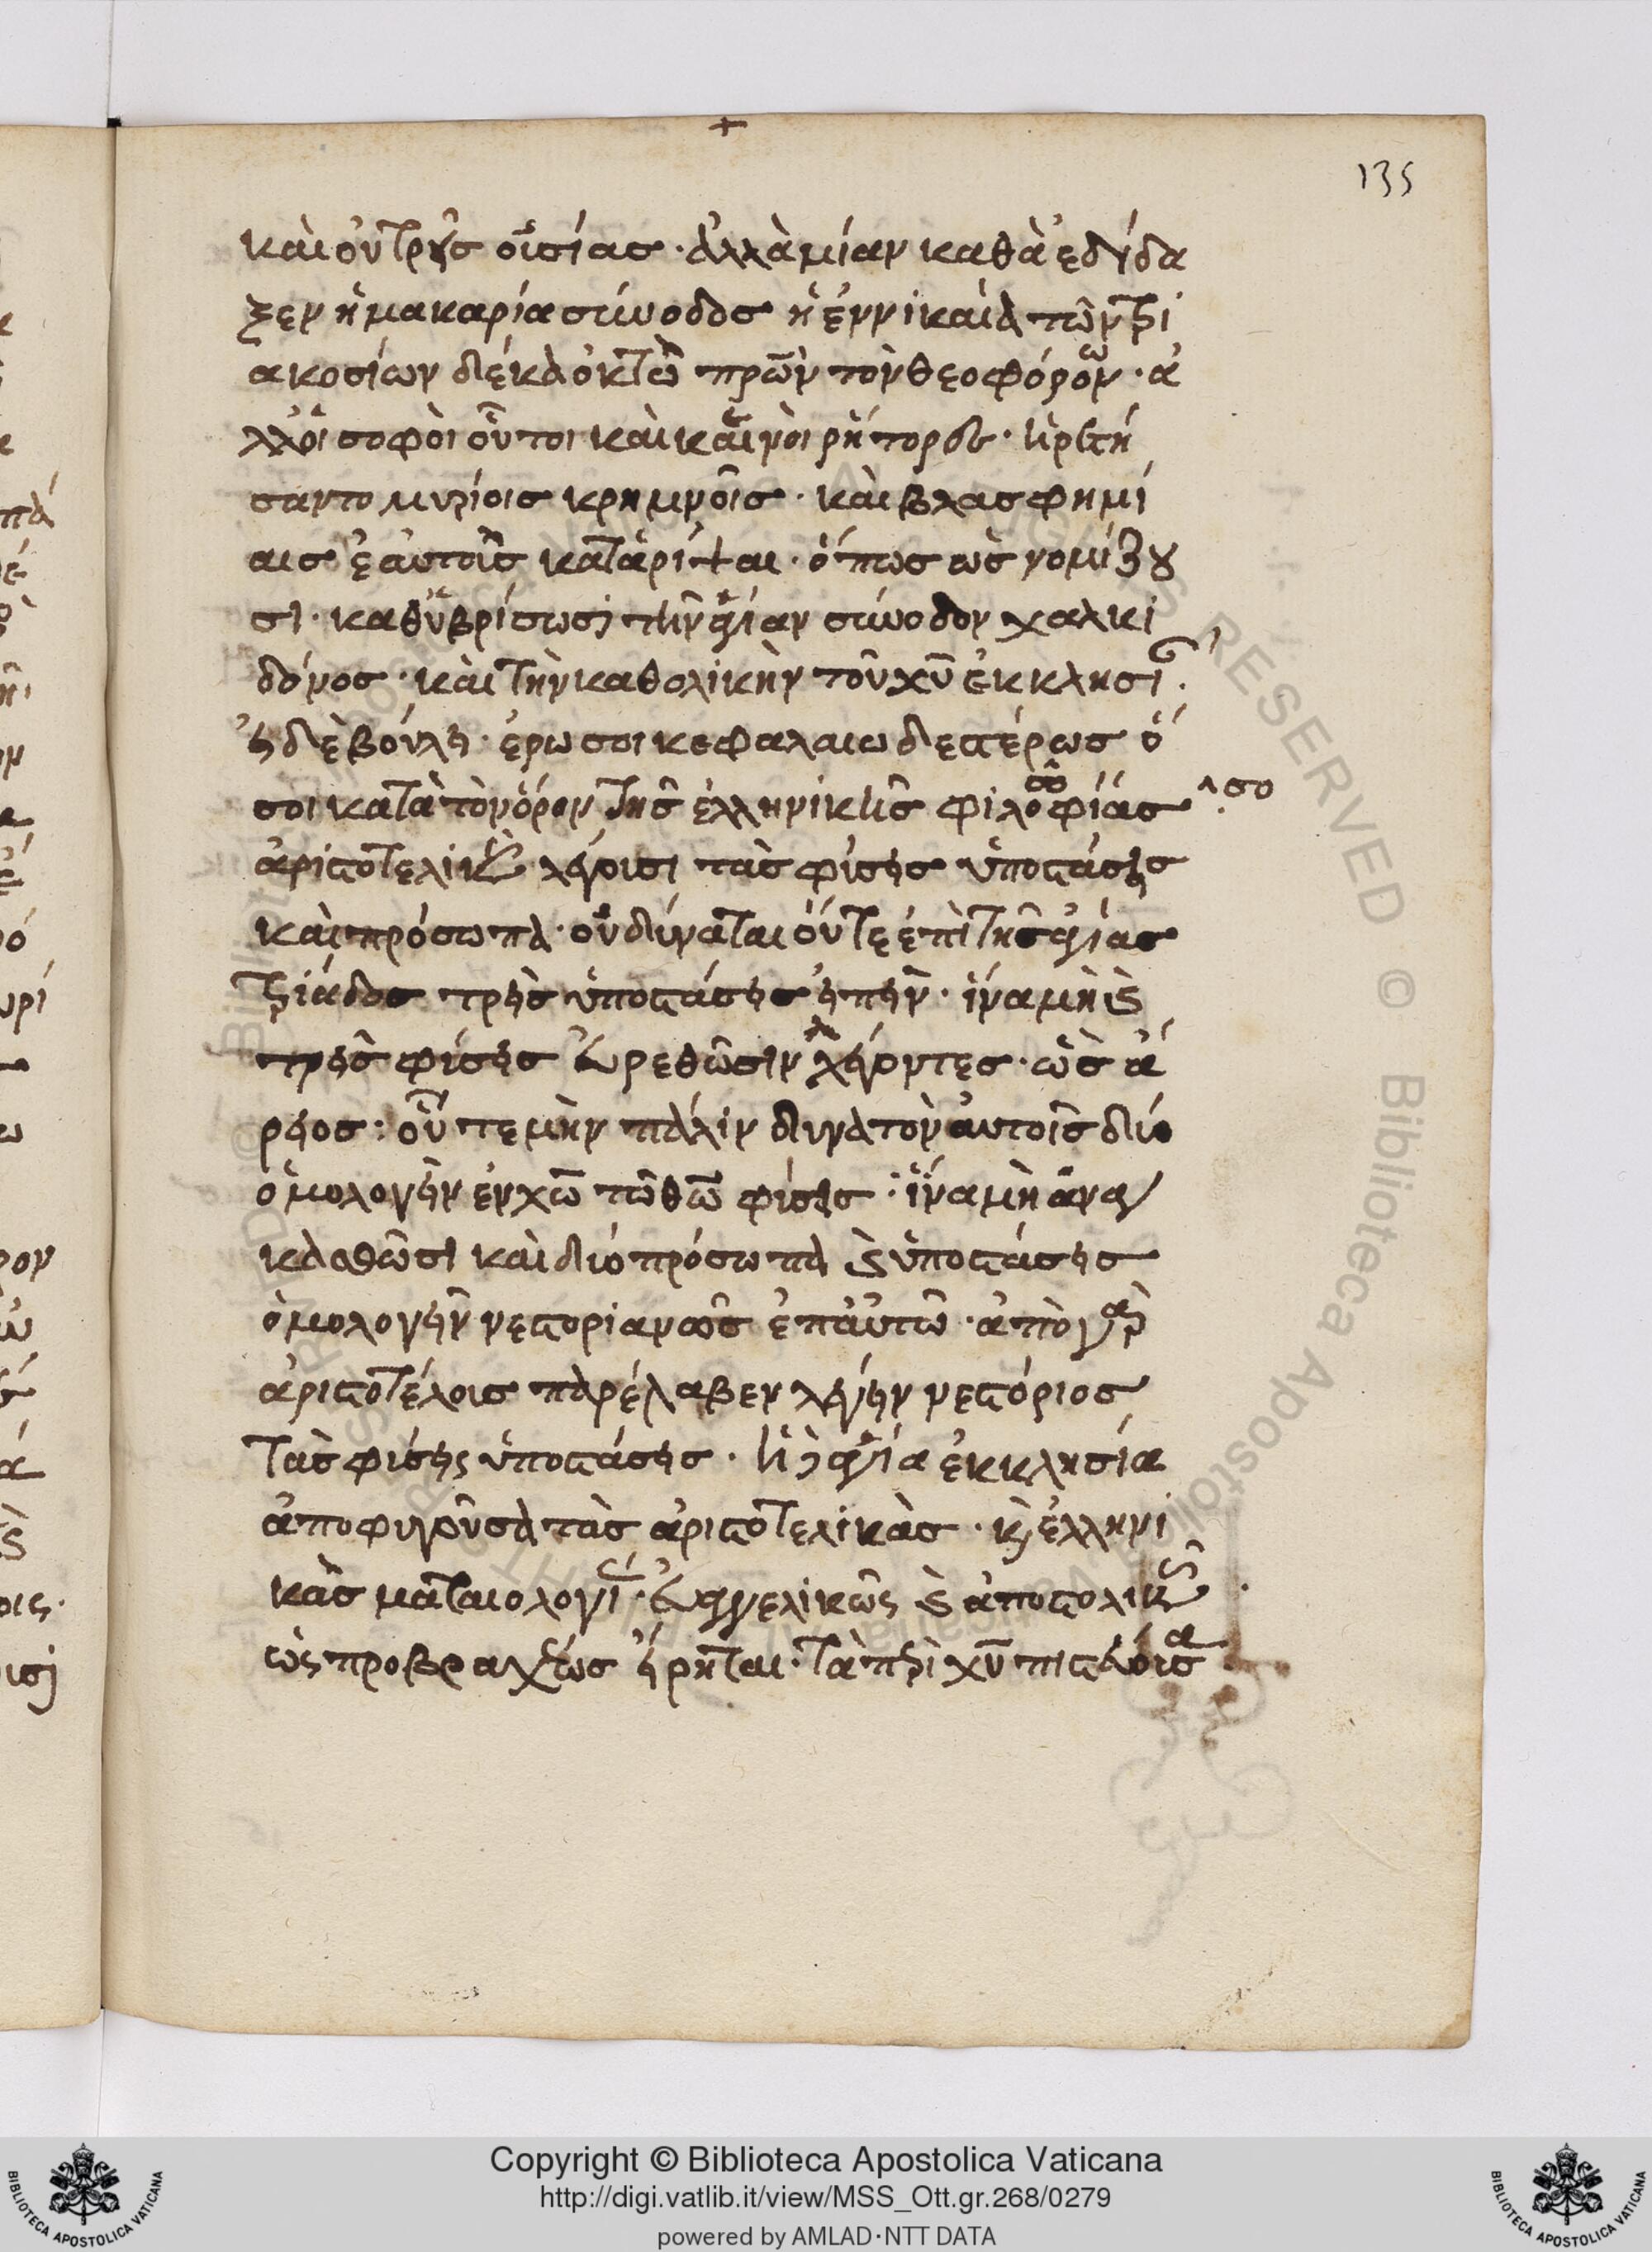 135
καὶ οὐ τρεῖς οὐσίας · ἀλλὰ μίαν καθὰ ἐδίδα
ξεν ἡ μακαρία σύνοδος ἡ ἐν νικαία τῶν τρι
ακοσίων δέκα ὀκτὼ πρων τὸν θεοφόρων · ἀ
λλ' οἱ σοφοὶ οὗτοι καὶ καινοὶ ῥήτορες · ἡρετή
σαντο μυρίοις κρημνοῖς · καὶ βλασφημί
αις ἑαυτοῖς καταρίψαι · ὅπως ὡς νομίζου
σι · καθυβρίσωσι τὴν ἁγίαν σύνοδον χαλκι
δόνος · καὶ τὴν καθολικὴν τοῦ χυ ἐκκλησί
εἰ δὲ βούλει · ἐρῶ σοι κεφαλαιωδεστέρως ὅ
σοι κατὰ τὸν ὅρον τῆς ἑλληνικῆς φιλοσοφίας
σο
ἀριστοτελικῶς λέγουσι τὰς φύσεις ὑποστάσεις
καὶ πρόσωπα · οὐ δύναται οὔτε ἐπὶ τῆς ἁγίας
τριάδος τρεῖς ὑποστάσεις εἰπεῖν · ἵνα μὴ καὶ
τρεῖς φύσεις εὑρεθῶσιν λέγοντες · ὡς ἄ
ρειος : οὔτε μὴν πάλιν δυνατὸν αὐτοῖς δύο
ὁμολογεῖν ἐν χω τῶ θω φύσεις · ἵνα μὴ ἀναγ
κασθῶσι καὶ δύο πρόσωπα καὶ ὑποστάσεις
ὁμολογεῖν νεστοριανῶς ἐπ' αὐτῶ · ἀπὸ γὰρ
ἀριστοτέλους παρέλαβεν λέγειν νεστόριος
τὰς φύσεις ὑποστάσεις · ἡ δὲ ἁγία ἐκκλησία
ἀποφυγοῦσα τὰς ἀριστοτελικὰς · καὶ ἑλληνι
κὰς ματαιολογί · εὐαγγελικῶς καὶ ἀποστολικῶς ·
ὡς προβραχέως εἴρηται · τὰ περὶ χυ πιστεύουσα
Copyright © Biblioteca Apostolica Vaticana
http://digi.vatlib.it/view/MSS_Ott.gr.268/0279
powered by AMLAD·NTT DATA